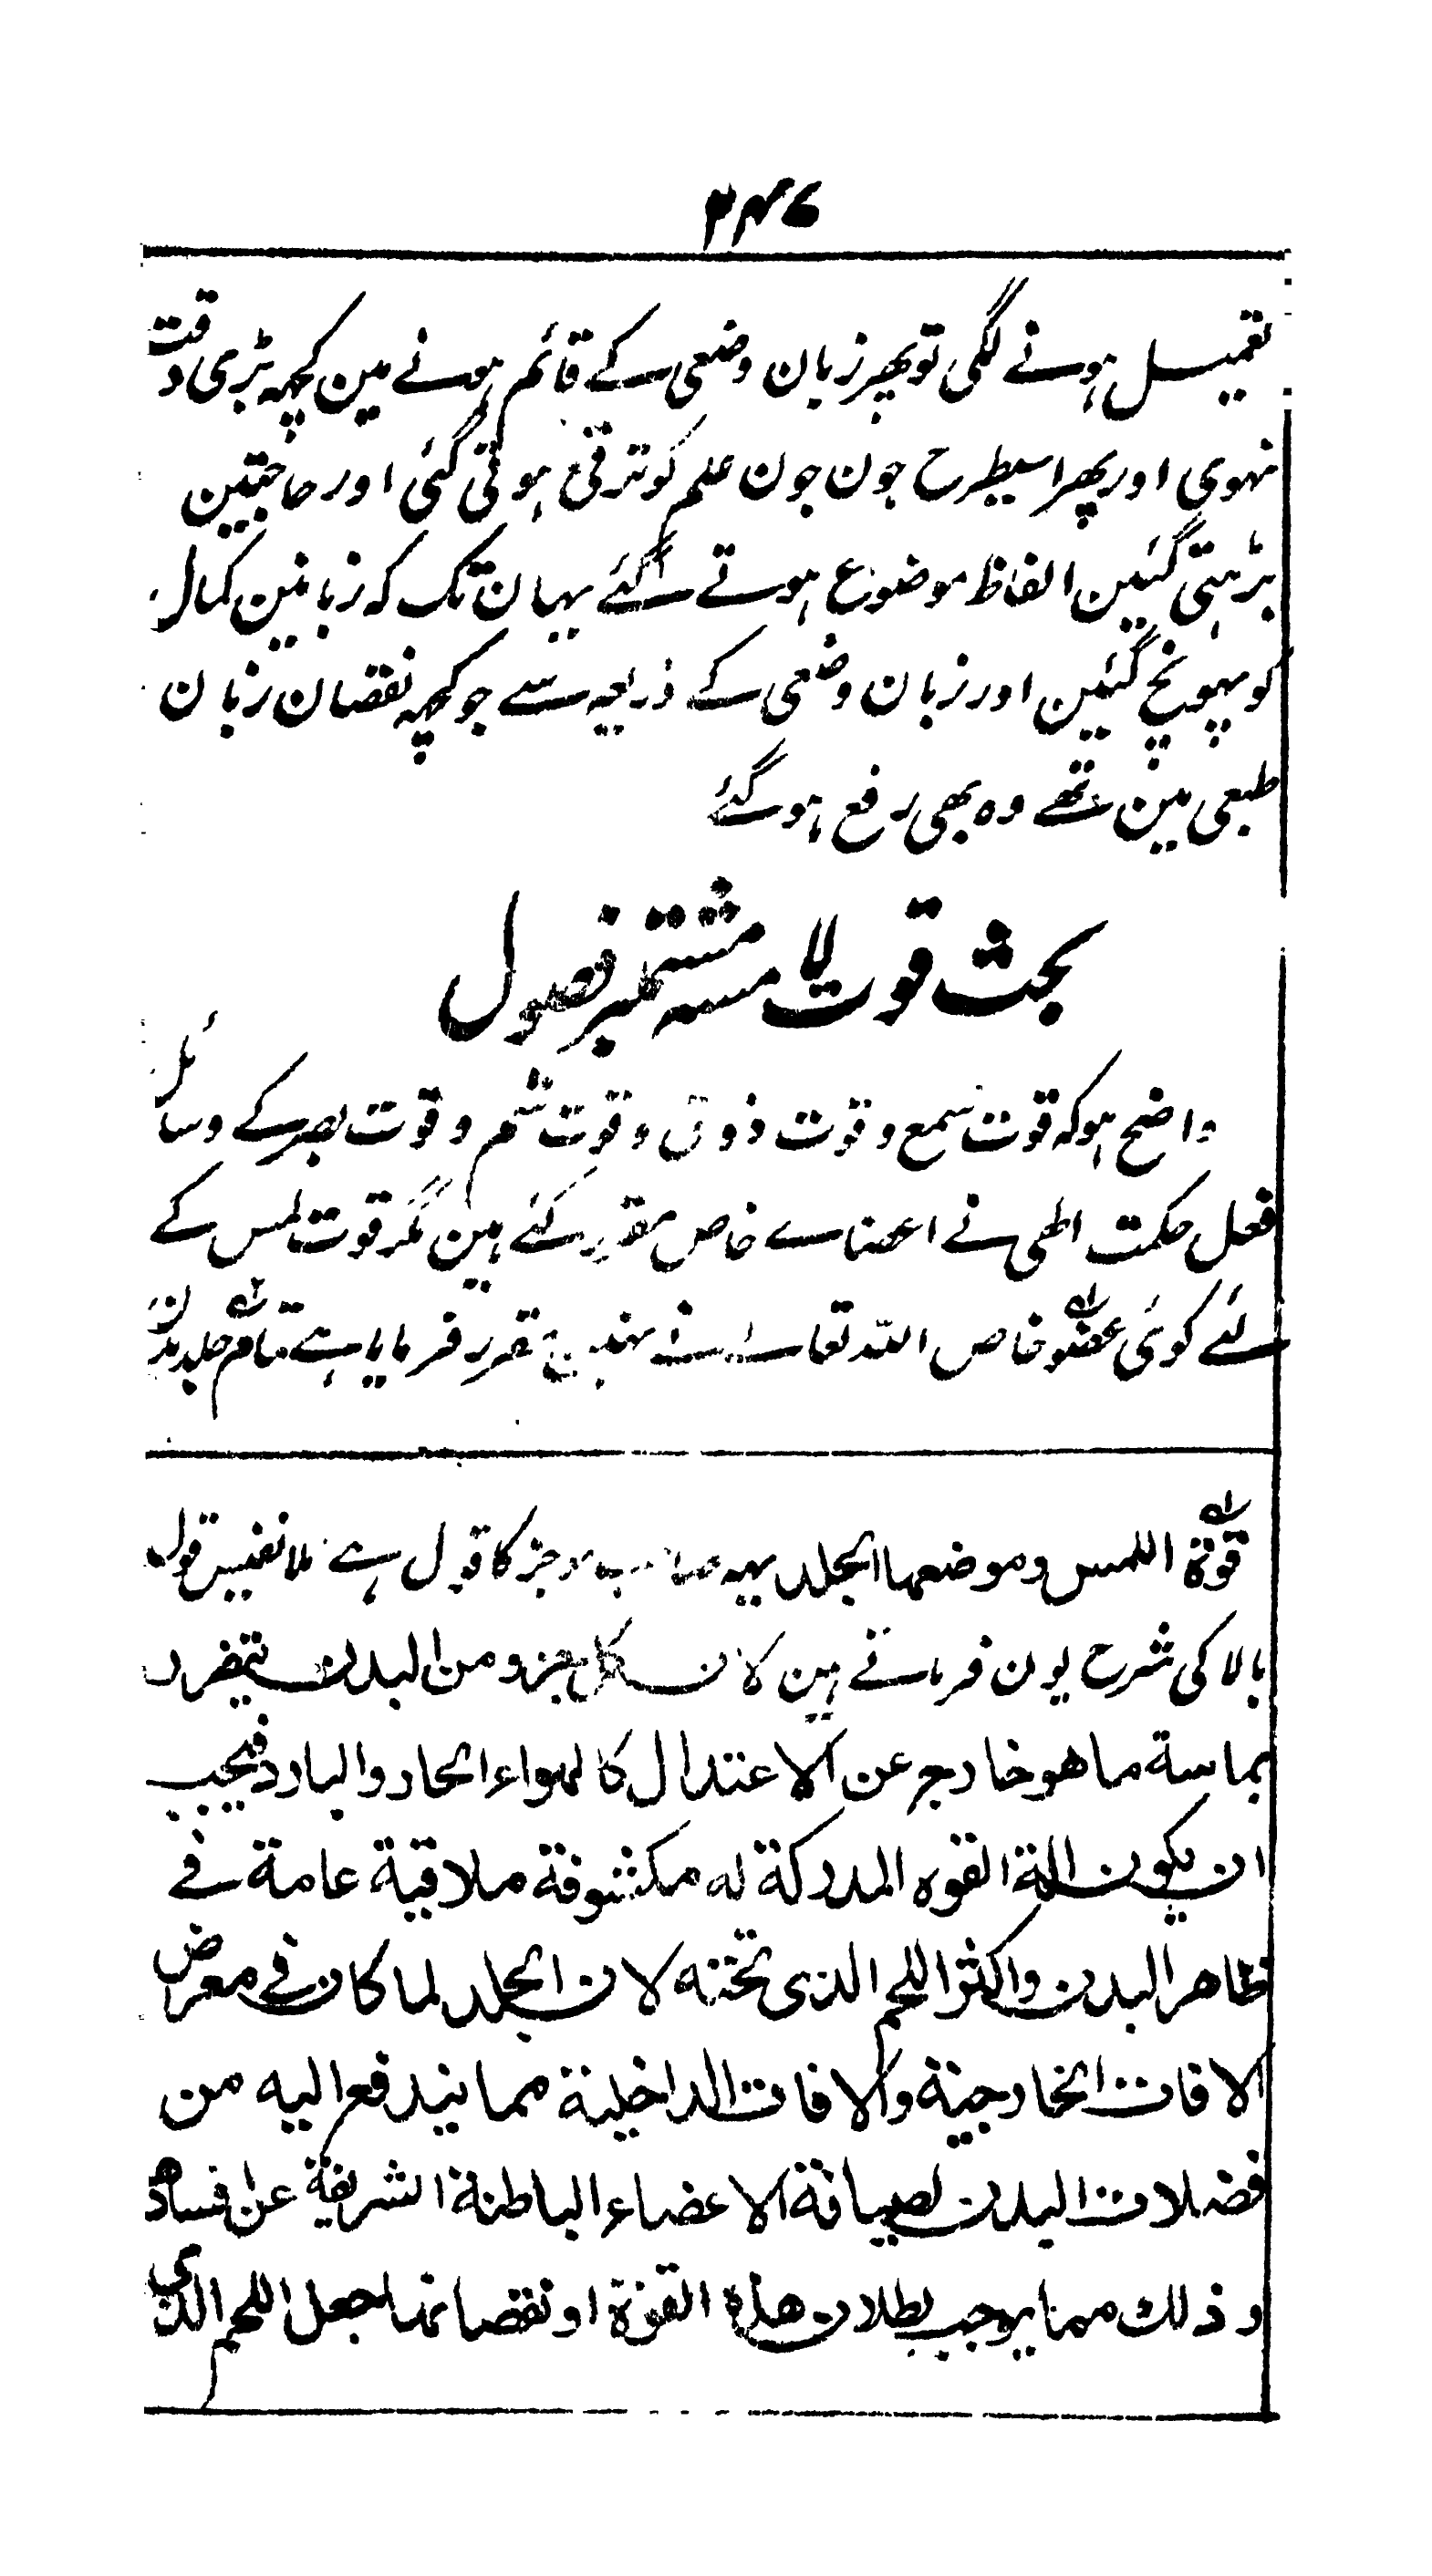 ۲۴۷
تعمیل ہونے لگی تو پھر زبان وضعی کے قائم ہونے مین کچہہ بڑی دقت
نہوی اور پھر اسیطرح جون جون علم کو ترقی ہوتی گئی اور حاجتین
بڑہتی گئین الفاظ موضوع ہوتے گئے یہان تک کہ زبانین کمال
کو پہونچ گئین اور زبان وضعی کے ذریعہ سے جو کچہہ نقصان زبان
طبعی مین تھے وہ بھی رفع ہو گئے
بحث قوت لامسہ مشتملبر فصول
واضح ہو کہ قوت سمع و قوت ذوق و قوت شم و قوت بصر کے وسائل
فعل حکمت الہی نے اعضاے خاص مقرر کئے ہین مگر قوت لمس کے
لئے کوئی عضو خاص اللہ تعالے نے نہین مقرر فرمایا ہے تمام جلد بدن
قوة اللمس وموضعها الجلد یہہ صاحب موجز کا قول ہے ملا نفیس قول
بالا کی شرح یون فرماتے ہین لان کل جزو من البدن يتضرر
بماسة ما هو خارج عن الاعتدال كالهواء الحار والبارد فيجب
ان يكون الة القوه المدركة له مكشوفة ملاقية عامة في
ظاهر البدن واكثر اللحم الذي تحته لان الجلد لما كان في معرض
الافات الخارجية والافات الداخلية مما يندفع اليه من
فضلات البدن لصيانة الاعضاء الباطنة الشريفة عن فسادها
وذلك مما يوجب بطلان هذه القوة او نقصانها جعل اللحم الذي